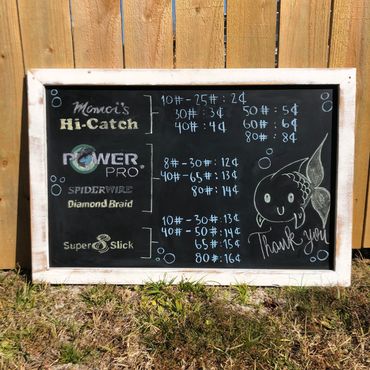 Momoi's
Hi-Catch
10# - 25# : 2¢
30# : 3¢
40# : 4¢
50# : 5¢
60# : 6¢
80# : 8¢
POWER
PRO®
SPIDERWIRE
Diamond Braid
8# - 30# : 12¢
40# - 65# : 13¢
80# : 14¢
Super 8 Slick
10# - 30# : 13¢
40# - 50# : 14¢
65# : 15¢
80# : 16¢
Thank you